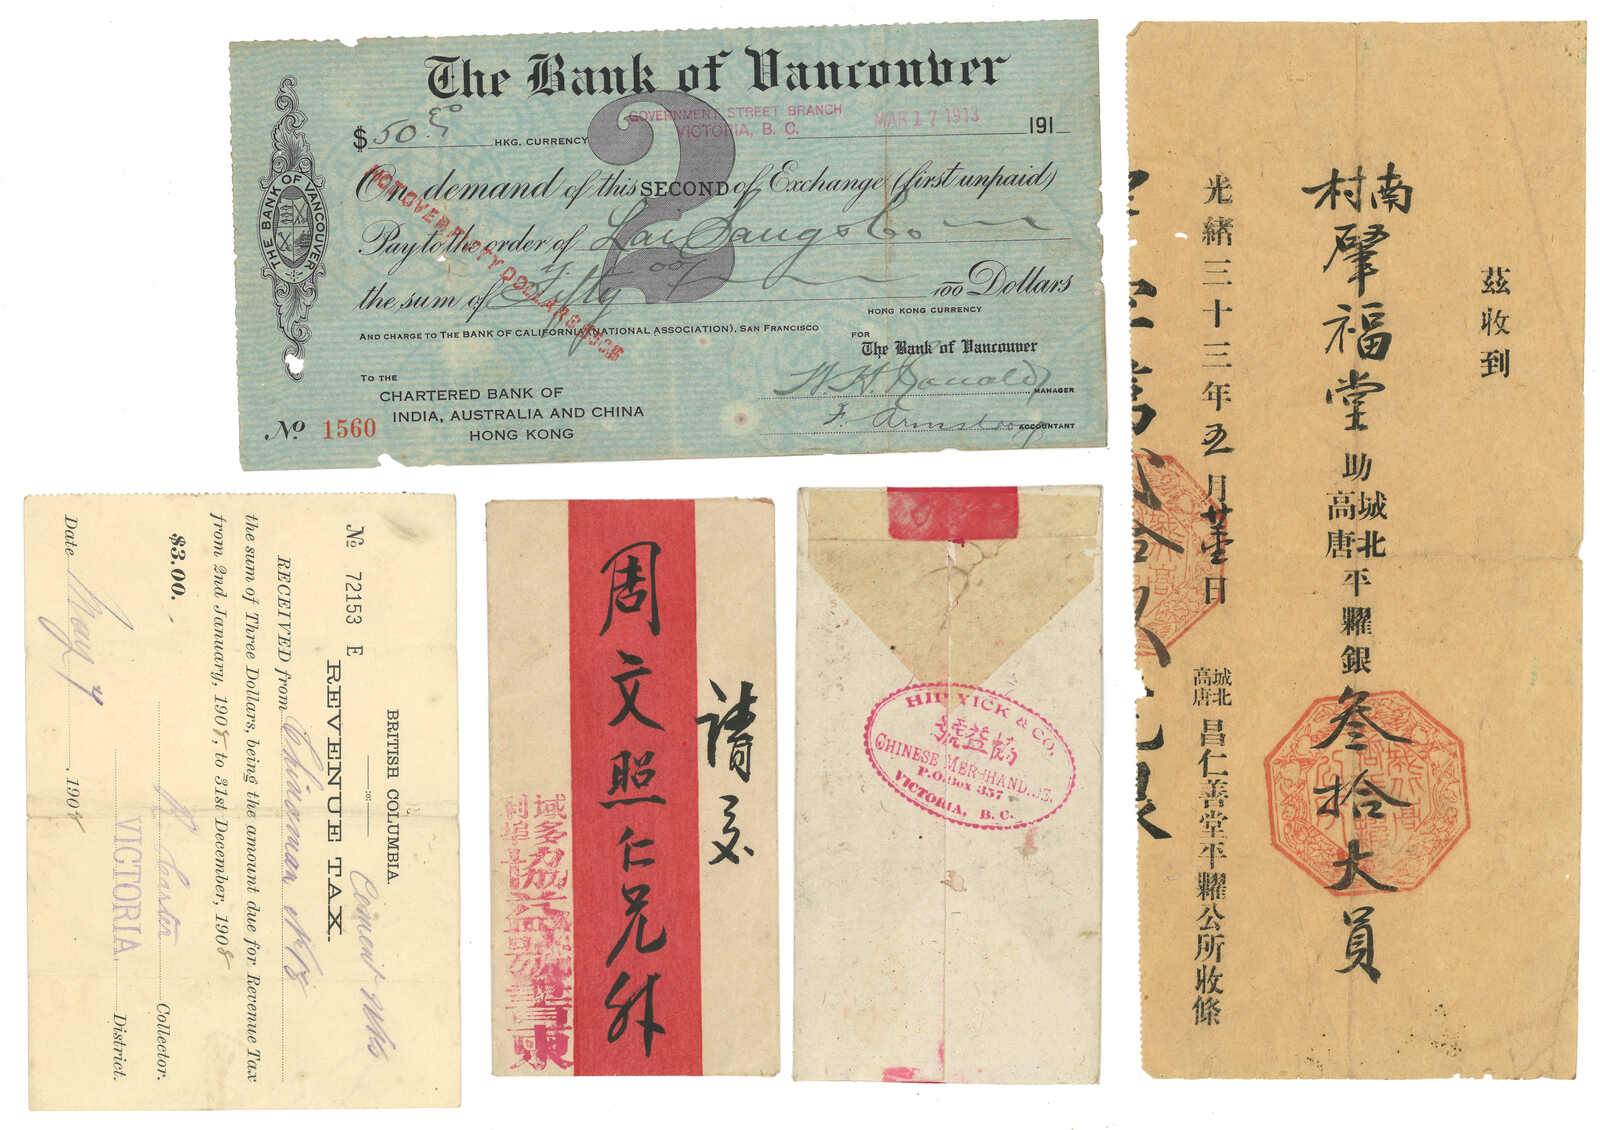 The Bank of Vancouver
GOVERNMENT STREET BRANCH
VICTORIA, B. C.
MAR 17 1913
191
$ 50
HKG. CURRENCY
2
On demand of this SECOND of Exchange (first unpaid)
Pay to the order of Lai Sang & Co
the sum of Fifty 00/100 Dollars
HONG KONG CURRENCY
NOT OVER FIFTY DOLLARS $50$
AND CHARGE TO THE BANK OF CALIFORNIA (NATIONAL ASSOCIATION), SAN FRANCISCO
FOR
The Bank of Vancouver
TO THE
CHARTERED BANK OF
INDIA, AUSTRALIA AND CHINA
HONG KONG
MANAGER
F. Armstrong ACCOUNTANT
No 1560
THE BANK OF VANCOUVER
茲收到
南村肇福堂助城北高唐平糶銀叁拾大員
光緒三十三年五月廿壹日
城北高唐昌仁善堂平糶公所收條
BRITISH COLUMBIA.
Cement Wks
REVENUE TAX.
No 72153 E
RECEIVED from Chinaman No 8
the sum of Three Dollars, being the amount due for Revenue Tax
from 2nd January, 1908, to 31st December, 1908
$3.00.
Collector.
VICTORIA District.
Date May 7, 1908
請交
周文照仁兄
域多利埠
HIP YICK & CO.
協益號
CHINESE MERCHANDISE.
P.O. Box 357
VICTORIA, B. C.